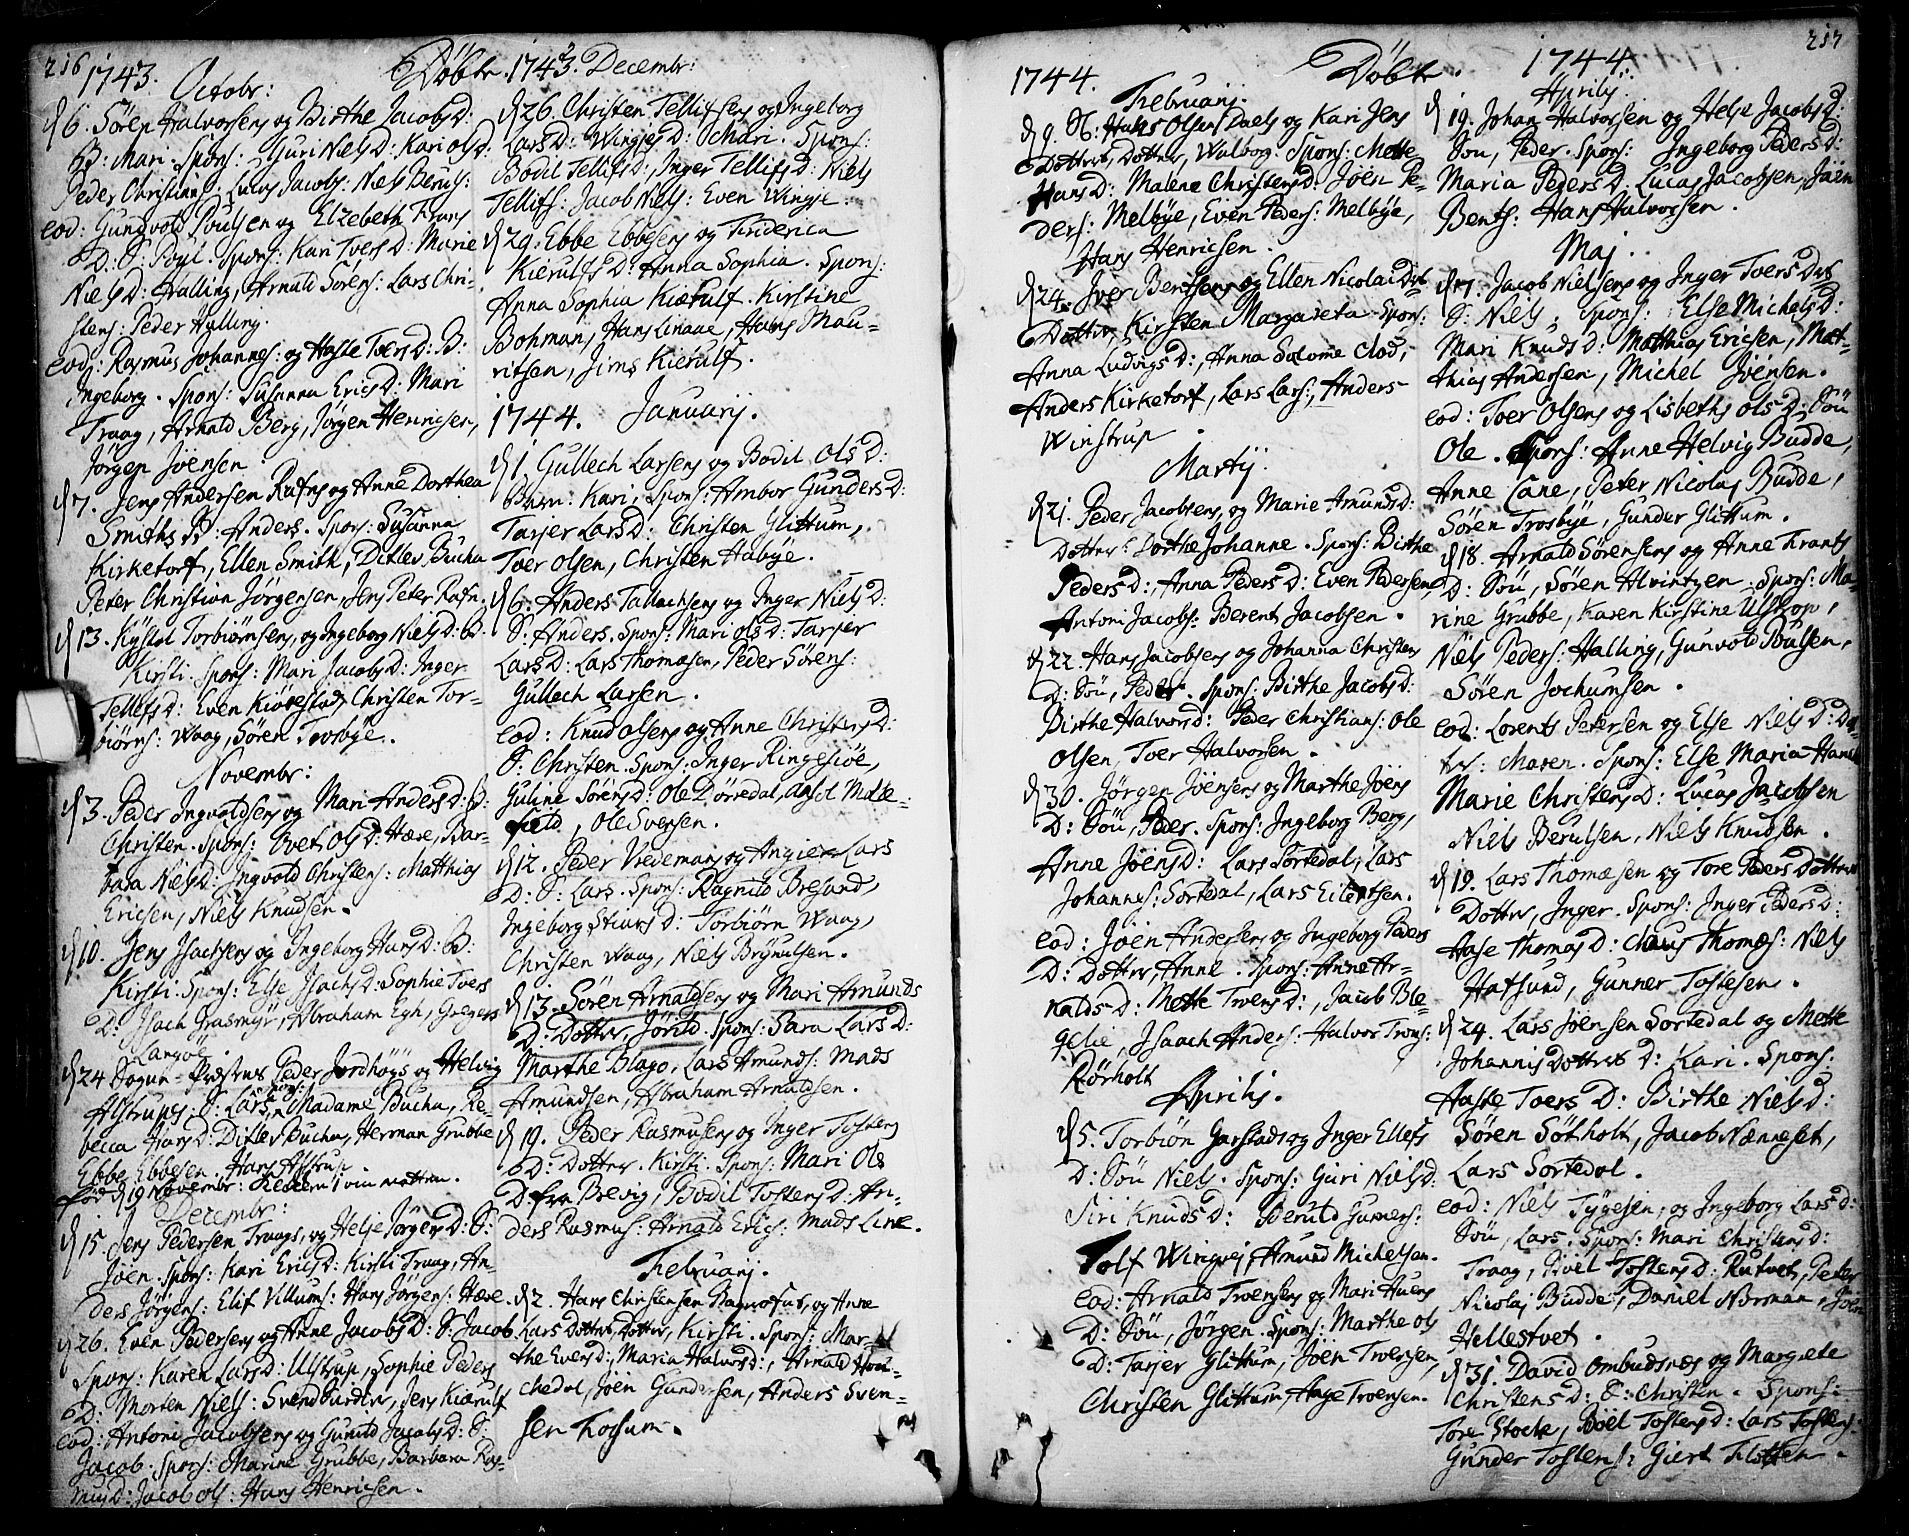 216
1743. Octobr:
Döbte
d 6. Sören Halvorsens og Birthe Jacobs D:
B: Mari. Spons: Guri Niels D: Kari Ols D:
Peder Christians: Lucas Jacobs: Niels Beruls:
eod: Gundvold Poulsen og Elzebeth Frans
D: S: Poul. Spons: Kari Tvers D: Marie
Niels D: Halling, Arnald Sörens: Lars Chri-
stens: Peder Halling.
eod: Rasmus Johannes: og Haste Toers D: B:
Ingeborg. Spons: Susanna Erics D: Mari
Traag, Arnald Berg, Jörgen Henricsen,
Jörgen Jöensen
d 7. Jens Andersen Rafns og Anne Dorthea
Smiths B: Anders. Spons: Susanna
Kirketorf, Ellen Smith, Ditlev Bucha
Peter Christian Jörgensen, Jens Peter Rafn.
d 13. Kystel Torbiörnsens, og Ingeborg Niels D: B.
Kirsti. Spons: Mari Jacobs D: Inger
Tellefs D: Even Kiörestad, Christen Tor-
biörns: Waag, Sören Trosbye.
Novembr:
d 3. Peder Ingvaldsens og Mari Anders D: B:
Christen. Spons: Beret Ols D: Hæse, Bar-
bara Niels D: Ingvold Christens: Matthias
Ericsen, Niels Knudsen.
d 10. Jens Isachsens og Ingeborg Hans D: B:
Kirsti. Spons: Else Isachs D: Sophie Toers
D: Isach Grasmyr, Abraham Egh, Gregers
Langöe.
d 24 Sogne-Præstens Peder Jordhöys og Helvig
Alstrups S: Lars, Spons: Madame Bucha, Re-
becca Hans D: Ditlev Bucha, Herman Grubbe
Ebbe Ebbesen. Hans Alstrup.
föd d 19 Novembr: Klocken 1 om natten.
Decembr:
d 15 Jens Pedersen Traags, og Helje Jörgens D: S:
Jöen. Spons: Kari Erics D: Kirsti Traag, An-
ders Jörgens: Elif Villums: Hans Jörgens: Hæse.
d 26. Even Pedersens og Anne Jacobs D: S: Jacob
Spons: Karen Lars D: Ulstrup, Sophie Peders
D: Morten Niels: Svend Gurder, Jens Kiærulf
eod: Antoni Jacobsens og Gunild Jacobs D: S:
Jacob. Spons: Marine Grubbe, Barbara Ras-
mus D: Jacob Ols: Hans Henricsen.
1743. Decembr:
d 26. Christen Tellifsens og Ingeborg
Lars D: Wingjes D: Mari. Spons:
Bodil Tellifs D: Inger Tellifs D: Niels
Tellifs: Jacob Niels: Even Wingje.
d 29. Ebbe Ebbesens og Friderica
Kierulfs D: Anna Sophia. Spons:
Anna Sophia Kiærulf. Kirstine
Bohman, Hans Linaae, Hans Mau-
ritsen, Jens Kierulf.
1744. Januarij.
d 1. Gullech Larsens og Bodil Ols D:
Barn: Kari, Spons: Ambor Gunders D:
Tarjer Lars D: Christen Glittum,
Toer Olsen, Christen Habye.
d 6: Anders Tallachsens og Inger Niels D:
S: Anders. Spons: Mari Ols D: Tarjer
Lars D: Lars Thomæsen, Peder Sörens:
Gullech Larsen.
eod: Knud Olsens og Anne Christens D:
S: Christen. Spons: Inger Ringesiöe,
Guline Sörens D: Ole Dörredal, Ansol Melle-
field, Ole Svensen.
d 12. Peder Vredemans og Angier Lars
D: S: Lars. Spons: Ragnild Bresund,
Ingeborg Stiurs D: Torbiörn Waag,
Christen Waag, Niels Brynulsen.
d 13. Sören Arnaldsens og Mari Amunds
D: Dotter, Jörild. Spons: Sara Lars D:
Marthe Blago, Lars Amunds: Mads
Amundsen, Abraham Arnaldsen.
d 19. Peder Rasmusens og Inger Tostens
D: Dotter. Kirsti. Spons: Mari Ols
D. fra Brevig, Bodil Tostens D: An-
ders Rasmus: Arnald Erics: Mads Line.
Februarij.
d 2. Hans Christensen Bagnofus, og Anne
Lars Dotters Dotter, Kirsti. Spons: Mar-
the Evers D:, Maria Halvors D:, Arnald Hou-
chedal, Jöen Gundersen, Anders Sven-
sen Fossum.
217
1744.
Döbte.
Februarij.
d 9. S: Hans Olsen Dæls og Kari Jens
Dotters, Dotter, Walborg. Spons: Mette
Hans D: Malene Christens D: Jöen Pe-
ders: Melbye, Even Peders: Melbye,
Hans Henricsen.
d 24. Iver Bentsens og Ellen Nicolai Dot-
Dotter, Kirsten Margareta. Spons:
Anna Ludvigs D:, Anna Salome Clod,
Anders Kirketorf, Lars Lars:, Anders
Winstrup.
Martij.
d 21. Peder Jacobsens, og Marie Amunds D:
Dotter: Dorthe Johanne. Spons: Birthe
Peders D:, Anna Peders D: Even Pedersen
Antoni Jacobs: Berent Jacobsen.
d 22. Hans Jacobsens og Johanna Christens
D: Sön, Peder. Spons: Birthe Jacobs D:
Birthe Halvors D: Peder Christians: Ole
Olsen, Toer Halvorsen.
d 30. Jörgen Jöensens og Marthe Jöens
D: Sön, Peder. Spons: Ingeborg Berg,
Anne Jöens D: Lars Sortedal, Lars
Johannes: Sortedal, Lars Eilertsen.
eod: Jöen Andersens og Ingeborg Peders
D: Dotter, Anne. Spons: Anne Ar-
nalds D: Mette Troens D:, Jacob Ble-
gelie, Isaach Anders: Halvor Trons:
Rörholt
Aprilis.
d 5. Torbiön Garstads og Inger Ellefs
D: Sön Niels. Spons: Guri Niels D:
Siri Knuds D: Beruld Gunners:
Tolf Wingrej, Amund Michelsen.
eod: Arnald Troensens og Mari Huens
D: Sön, Jörgen. Spons: Marthe Ols
D: Tarjer Glittum, Jöen Troensen,
Christen Glittum, Aage Troensen.
1744
Aprilis:
d 19. Johan Halvorsen og Helje Jacobs D:
Sön, Peder. Spons: Ingeborg Peders D:
Maria Peders D. Lucas Jacobsen, Jöen
Bents: Hans Halvorsen.
Maj.
d 7. Jacob Nielsens og Inger Toers Dot-
S: Niels. Spons: Else Michels D:
Mari Knuds D: Matthias Ericsen, Mat-
thias Andersen, Michel Jöensen.
eod: Toer Olsens og Lisbeths Ols D. Sön
Ole. Spons: Anne Helvig Budde,
Anne Lane, Peter Nicolas Budde,
Sören Trosbye, Gunder Glittum.
d 18. Arnald Sörensens og Anne Frants
D: Sön, Sören Alvintzen. Spons: Ma-
rine Grubbe, Karen Kirstine Ulstrop,
Niels Peders: Halling, Gunvold Poulsen,
Sören Jochumsen.
eod: Lorents Petersen og Else Niels D: Dot-
ter: Maren. Spons: Else Maria Hans
Marie Christens D: Lucas Jacobsen
Niels Berulsen, Niels Knudsen.
d 19. Lars Thomæsen og Tore Peders Dotters
Dotter, Inger. Spons: Inger Peders D:
Aase Thomas D: Claus Thomæs: Niels
Hafsund, Gunner Tostesen.
d 24. Lars Jöensen Sortedal og Mette
Johannis Dotters D: Kari. Spons:
Haste Toers D: Birthe Niels D:
Sören Sötholt, Jacob Nenneset,
Lars Sortedal.
eod: Niels Tygesen, og Ingeborg Lars D:
Sön, Lars. Spons: Mari Christens D:
Traag, Pivel Tostens D: Rutvet, Peter
Nicolaj Budde, Daniel Norman, Jöen
Hellestvet.
d 31. David Ombudsnes og Margrete
Christens D: S: Christen. Spons:
Tore Stocke, Böel Tostens D: Lars Tostens:
Gunder Tostens: Giert Flotten.